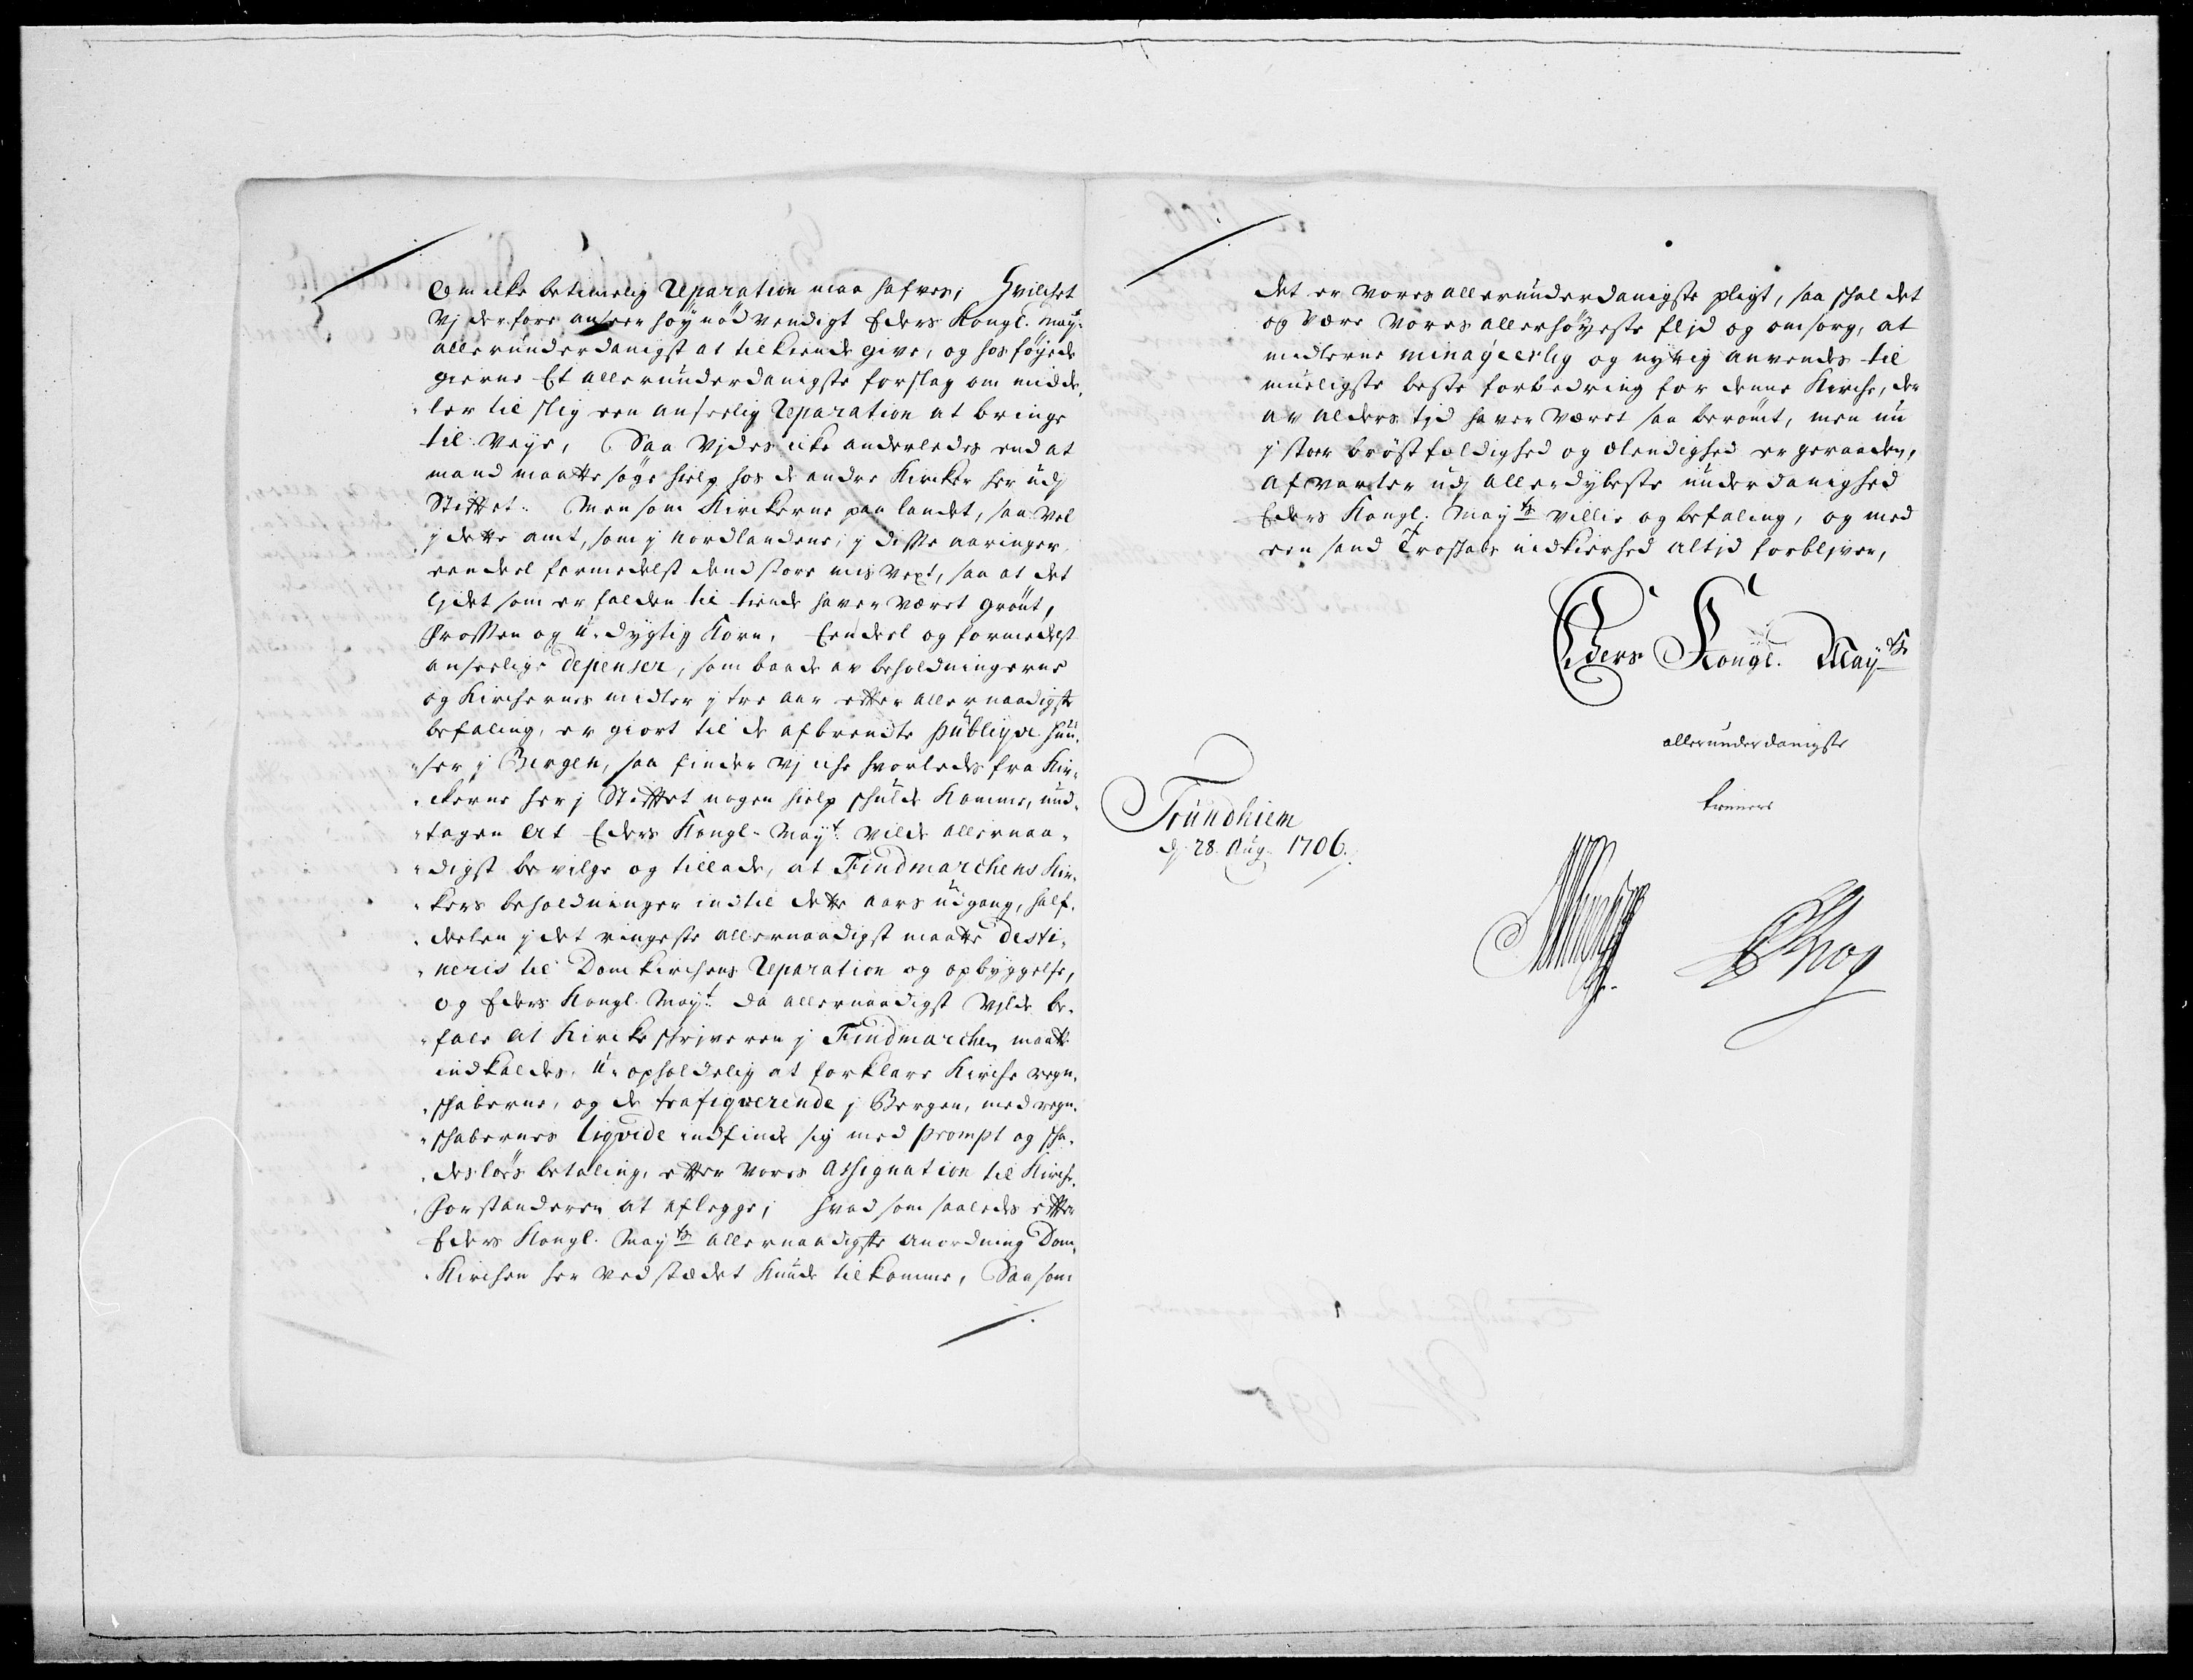 Om icke betimelig Reparation maa hafves; Hvilchet
Vj derfore anseer høynødvendigt Eders Kongl. Mayt:
allerunderdanigst at tilkiende give, og hosføyede
gierne Et allerunderdanigste forslag om midde,
,ler til slig een anseelig Reparation at bringe
til veye, Saa vjdes icke anderledes end at
mand maatte søge hielp hos de andre Kircker her udj
Stiftet. Men som Kirckerne paa landet, saa vel
j dette amt, som j Nordlandene, j disse aaringer,
eendeel formedelst dend store misvext, saa at det
ljdet som er falden til tiende haver været grønt,
frossen og u-dygtig Korn, Eendeel og formedelst
anseelige depenser, som baade av beholdningerne
og Kirchernes midler j tre aar efter allernaadigste
befaling, er giort til de afbrendte publiqve huu,
,ser j Bergen, saa finder vj iche hvorledes fra Kir,
,ckerne her j Stiftet nogen hielp schulde komme, und,
,tagen At Eders Kongl. Mayt. vilde allernaa,
,digst bevilge og tillade, at Findmarchens Kir,
,kers beholdninger indtil dette aars udgang, half,
,deelen j det ringeste allernaadigst maatte desti,
,neris til Domkirchens Reparation og opbyggelse,
og Eders Kongl. Mayt. da allernaadigst vilde be,
,fale at Kirckeschriveren j Findmarchen maatte
indkaldes, u-opholdelig at forklare Kirche regn,
,schaberne, og de trafiqverende j Bergen, med regn,
,schabernes liqvide indfinde sig med prompt og scha,
,desløs betaling, efter vores assignation til Kirche,
,forstanderen at aflegge; hvad som saaledes efter
Eders Kongl. Mayts allernaadigste anordning Dom,
,Kirchen her ved stædet kunde tilkomme, Saasom
det er vores allerunderdanigste pligt, saa schal det
og være vores allerhøyeste fljd og omsorg, at
midlerne minageerlig og nyttig anvendes til
mueligste beste forbedring for denne Kirche, der
av alders tjd haver været saa berømt, men nu
j stoer brøstfældighed og elendighed er geraaden,
afvarter udj allerdybeste underdanighed
Eders Kongl. Mayts villie og befaling, og med
een sand Troschabs nidkierhed altjd forbljver,
Eders Kongl. Mayts
allerunderdanigste
tienere
Trundhiem
dj 28. Aug. 1706.
Krog